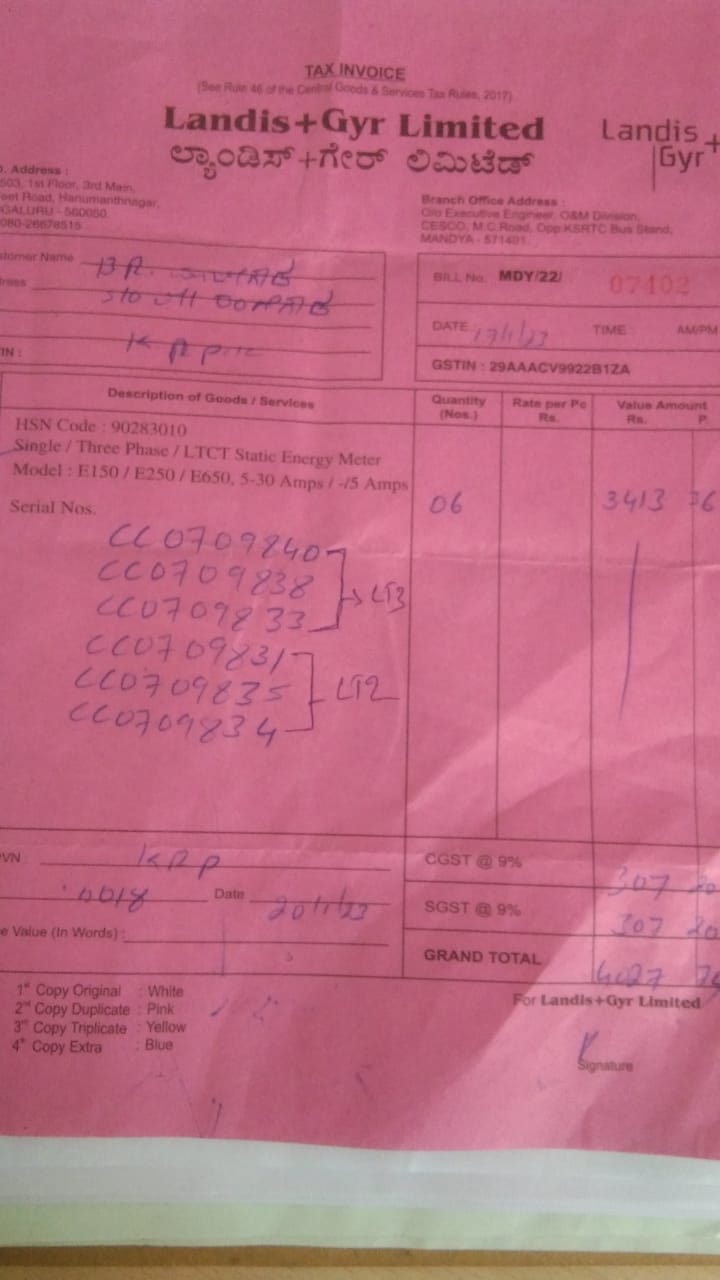 TAX INVOICE
(See Rule 46 of the Central Goods & Services Tax Rules, 2017)
Landis+Gyr Limited
ಲ್ಯಾಂಡಿಸ್+ಗೇರ್ ಲಿಮಿಟೆಡ್
Landis
Gyr+
. Address :
503, 1st Floor, 3rd Main,
eet Road, Hanumanthnagar,
GALURU - 560050.
080-26678515
Branch Office Address :
O/o Executive Engineer, O&M Division,
CESCO, M.C.Road, Opp.KSRTC Bus Stand,
MANDYA - 571401.
stomer Name
ress
IN :
BILL No. MDY/22/ 07402
DATE 17/1/23 TIME AM/PM
GSTIN : 29AAACV9922B1ZA
Description of Goods / Services Quantity (Nos.) Rate per Pc Rs. Value Amount Rs. P.
HSN Code : 90283010
Single / Three Phase / LTCT Static Energy Meter
Model : E150 / E250 / E650, 5-30 Amps / -/5 Amps
Serial Nos. 06 3413 76
CC0709840
CC0709838 LT3
CC0709833
CC0709831
CC0709835 LT2
CC0709834
VN KRP
0018 Date 20/1/23
e Value (In Words) :
CGST @ 9% 307 20
SGST @ 9% 307 20
GRAND TOTAL 4027
1st Copy Original : White
2nd Copy Duplicate : Pink
3rd Copy Triplicate : Yellow
4th Copy Extra : Blue
For Landis+Gyr Limited
Signature